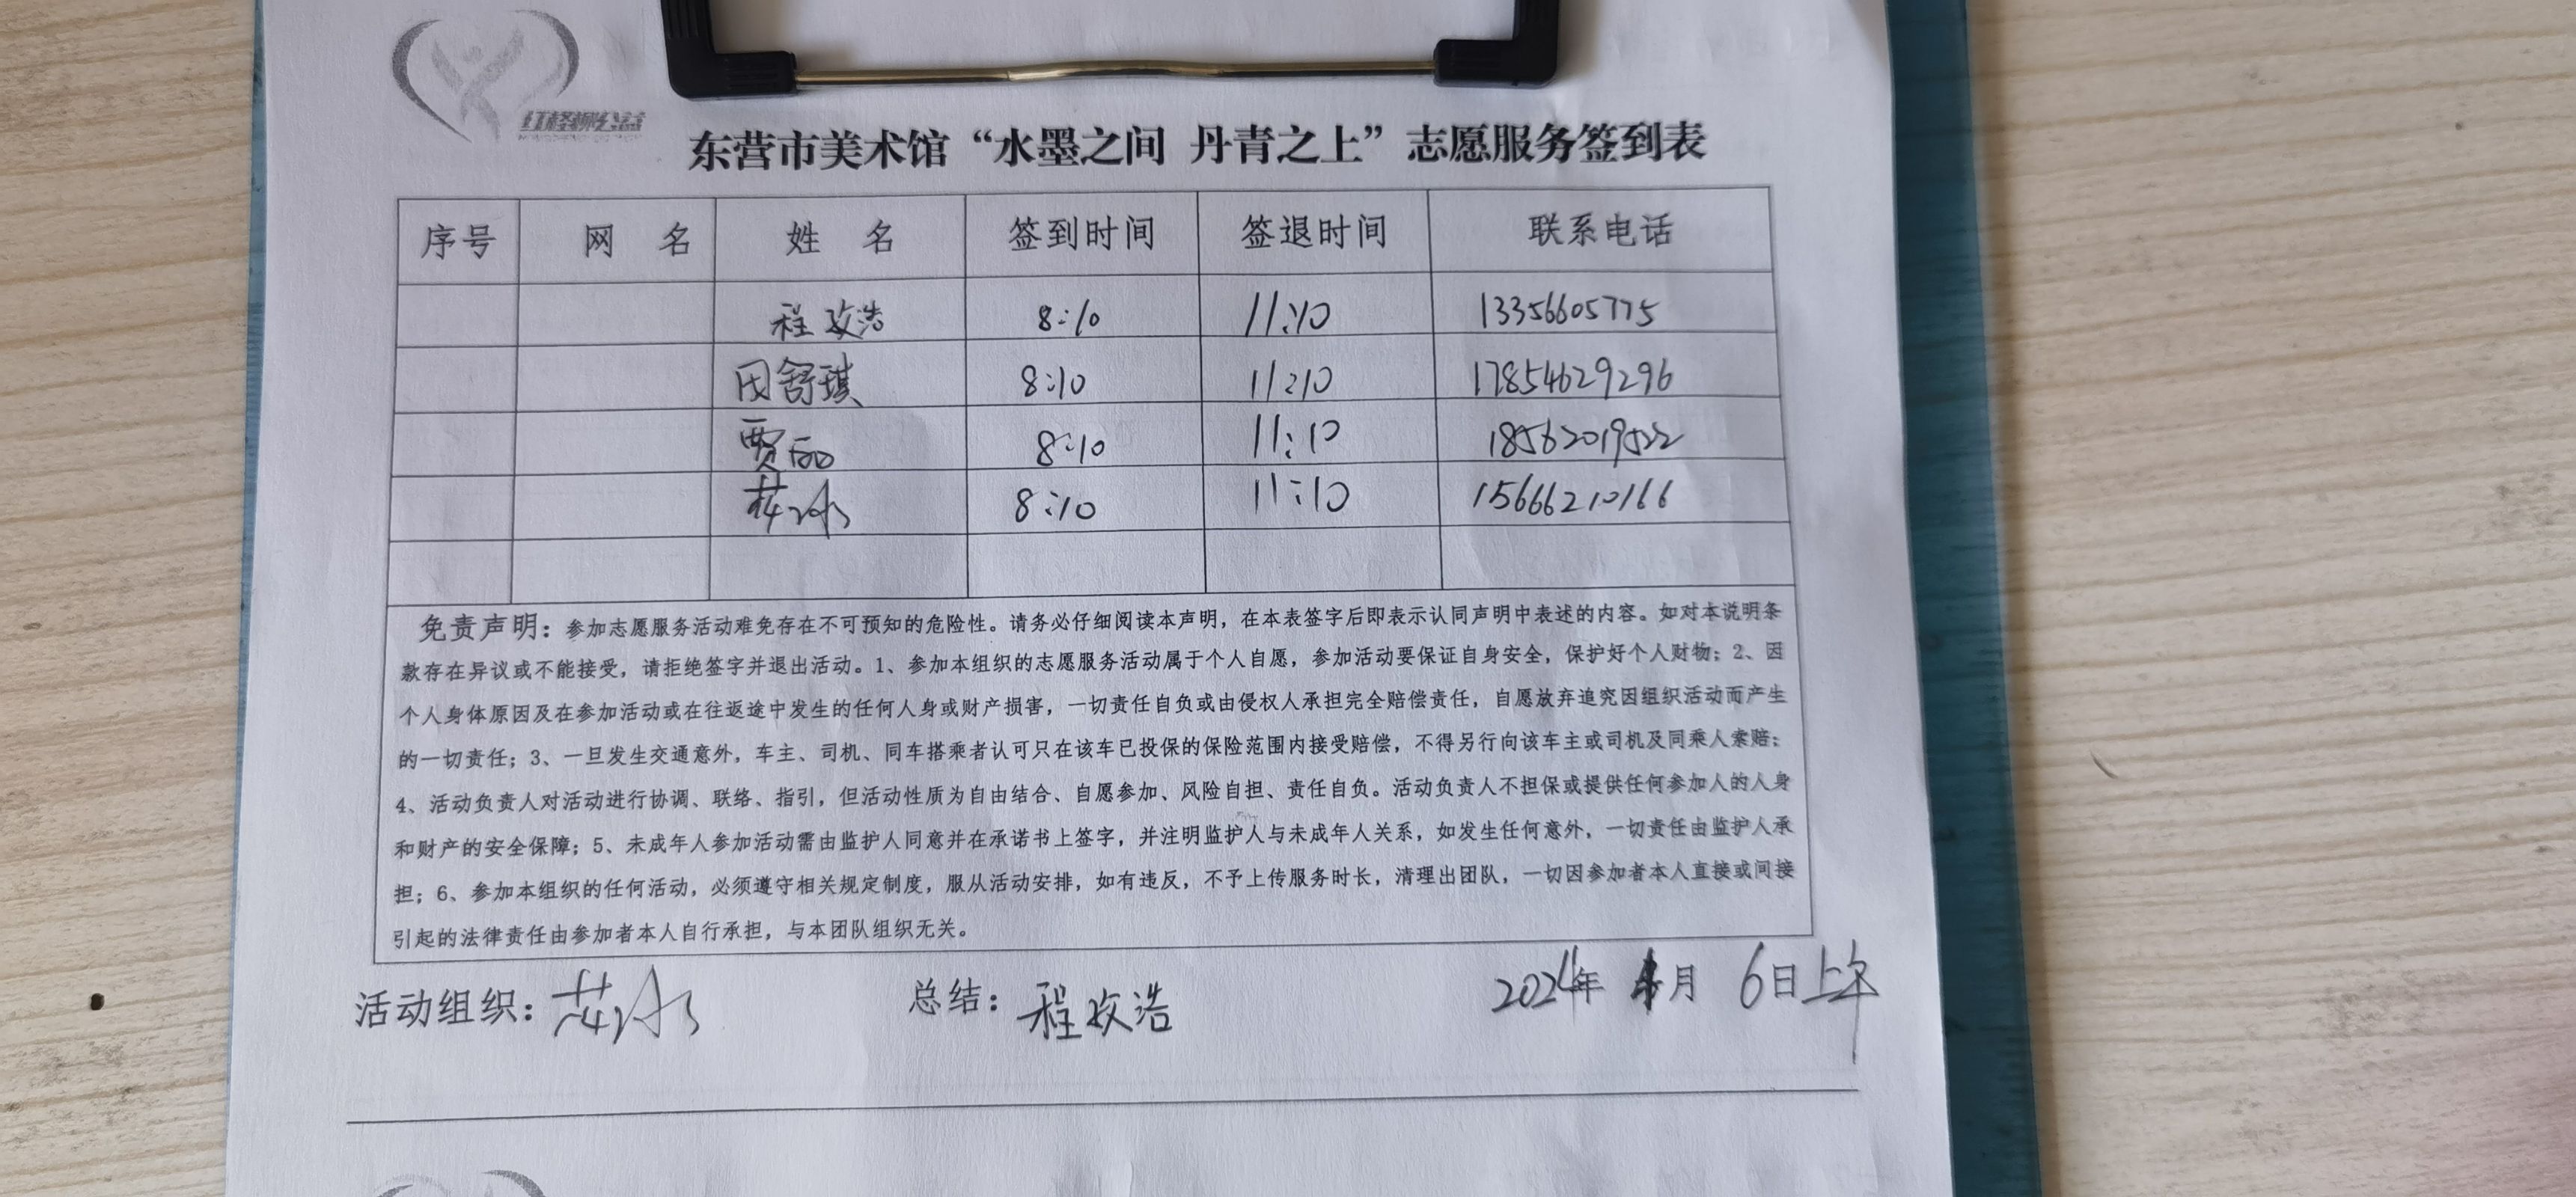 红柽柳公益
东营市美术馆“水墨之间 丹青之上”志愿服务签到表
序号 网 名 姓 名 签到时间 签退时间 联系电话
程孜浩 8:10 11:10 13356605775
田舒琪 8:10 11:10 17854629296
贾丽 8:10 11:10 18562019522
8:10 11:10 15666210166
免责声明：参加志愿服务活动难免存在不可预知的危险性。请务必仔细阅读本声明，在本表签字后即表示认同声明中表述的内容。如对本说明条
款存在异议或不能接受，请拒绝签字并退出活动。1、参加本组织的志愿服务活动属于个人自愿，参加活动要保证自身安全，保护好个人财物；2、因
个人身体原因及在参加活动或在往返途中发生的任何人身或财产损害，一切责任自负或由侵权人承担完全赔偿责任，自愿放弃追究因组织活动而产生
的一切责任；3、一旦发生交通意外，车主、司机、同车搭乘者认可只在该车已投保的保险范围内接受赔偿，不得另行向该车主或司机及同乘人索赔；
4、活动负责人对活动进行协调、联络、指引，但活动性质为自由结合、自愿参加、风险自担、责任自负。活动负责人不担保或提供任何参加人的人身
和财产的安全保障；5、未成年人参加活动需由监护人同意并在承诺书上签字，并注明监护人与未成年人关系，如发生任何意外，一切责任由监护人承
担；6、参加本组织的任何活动，必须遵守相关规定制度，服从活动安排，如有违反，不予上传服务时长，清理出团队，一切因参加者本人直接或间接
引起的法律责任由参加者本人自行承担，与本团队组织无关。
活动组织： 总结：程孜浩 2024年 月 6日上午